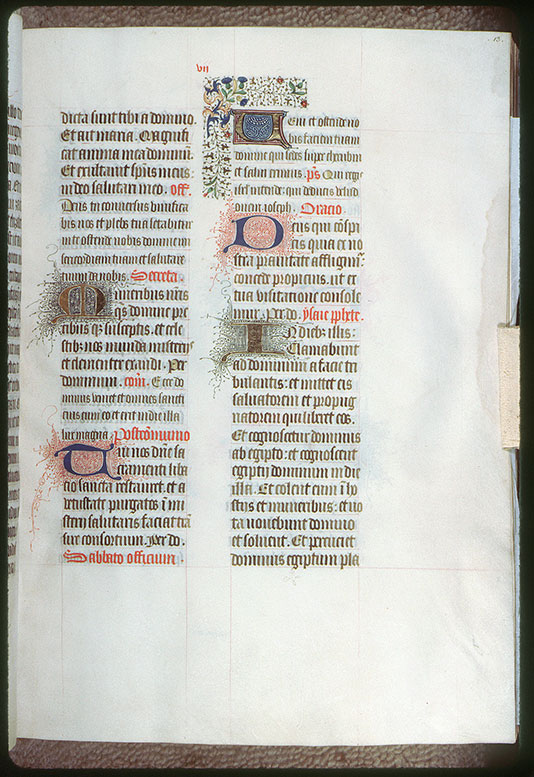 13.
VII
dicta sunt tibi a domino.
Et ait maria. Magnifi
cat anima mea dominum.
Et exultavit spus meus:
in deo salutari meo. off.
Deus tu conversus vivifica
bis nos et plebs tua letabitur
in te ostende nobis domine mi
sericordiam tuam et salutare
tuum da nobis. Secreta.
Muneribus nris
qs domine pre
cibus qz susceptis. et cele
stibz nos munda misteriis
et clementer exaudi. Per
dominum. com. Ecce do
minus veniet et omnes sancti
eius cum eo et erit in die illa
lux magna. Postcomunio
Tui nos dne sa
cramenti liba
cio sancta restauret. et a
vetustate purgatos i mi
sterii salutaris faciat tra
sire consortium. Per do.
Sabbato officium.
Veni et ostende no
bis faciem tuam
domine qui sedes super cherubin
et salvi erimus. ps Qui regis
isrl intende: qui deducis velud
ovem ioseph. Oracio
Deus qui cospi
cis quia ex no
stra pravitate affligimur:
concede propicius. ut ex
tua visitatione console
mur. Per do. ysaie pphete.
In diebz illis:
Clamabunt
ad dominum a facie tri
bulantis: et mittet eis
salvatorem et propug
natorem qui liberet eos.
Et cognoscetur dominus
ab egipto: et cognoscent
egiptii dominum in die
illa. Et colent eum i ho
stiis et muneribus: et vo
ta vovebunt domino
et solvent. Et percutiet
dominus egiptum pla